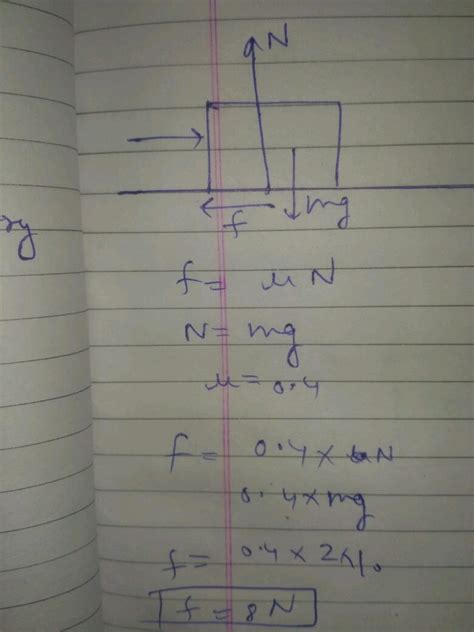 N
f
mg
ry
f = μN
N = mg
μ = 0.4
f = 0.4 × N
0.4 × mg
f = 0.4 × 2 × 10
f = 8 N